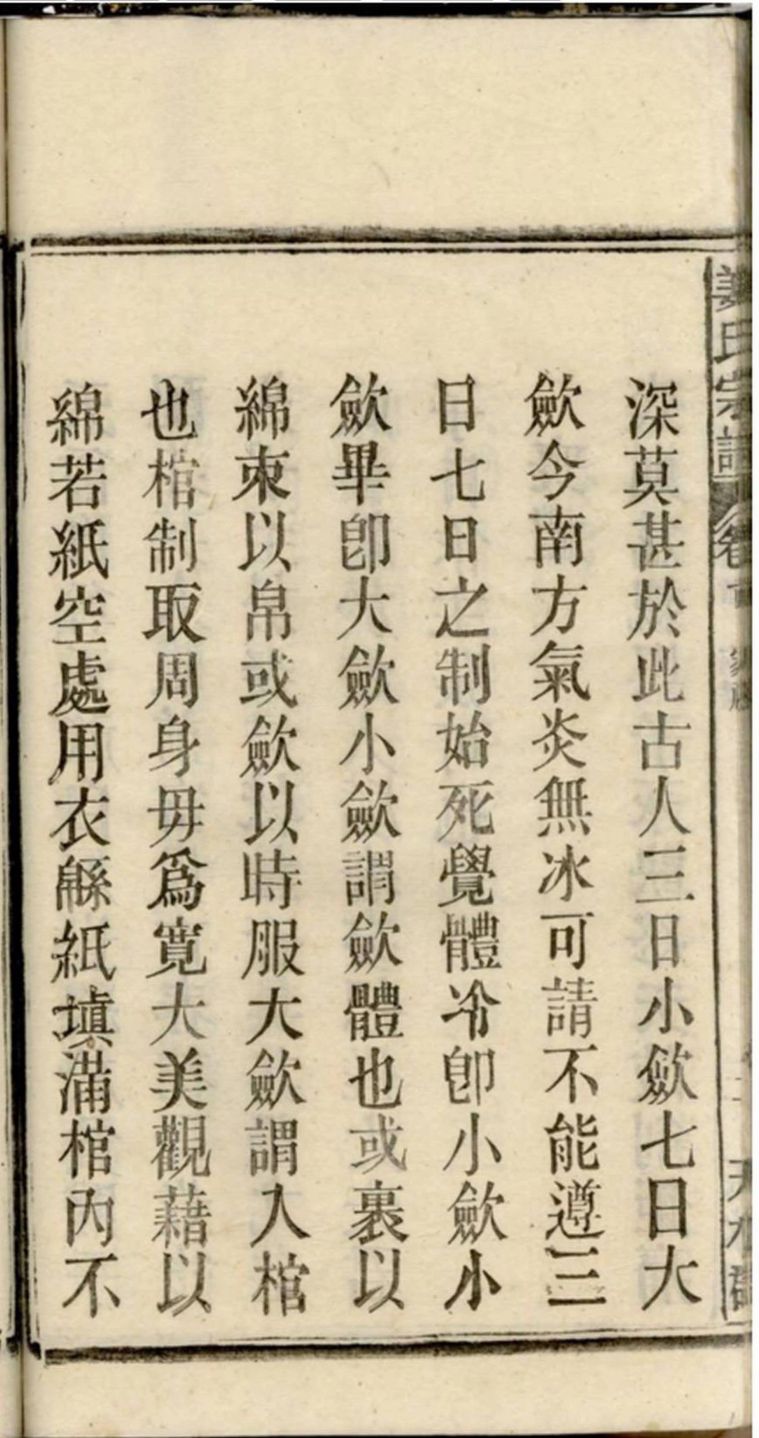 姜氏宗譜 卷首 天水
深莫甚於此古人三日小歛七日大
歛今南方氣炎無冰可請不能遵三
日七日之制始死覺體冷卽小歛小
歛畢卽大歛小歛謂歛體也或裹以
綿束以帛或歛以時服大歛謂入棺
也棺制取周身毋爲寬大美觀藉以
綿若紙空處用衣緜紙填滿棺內不